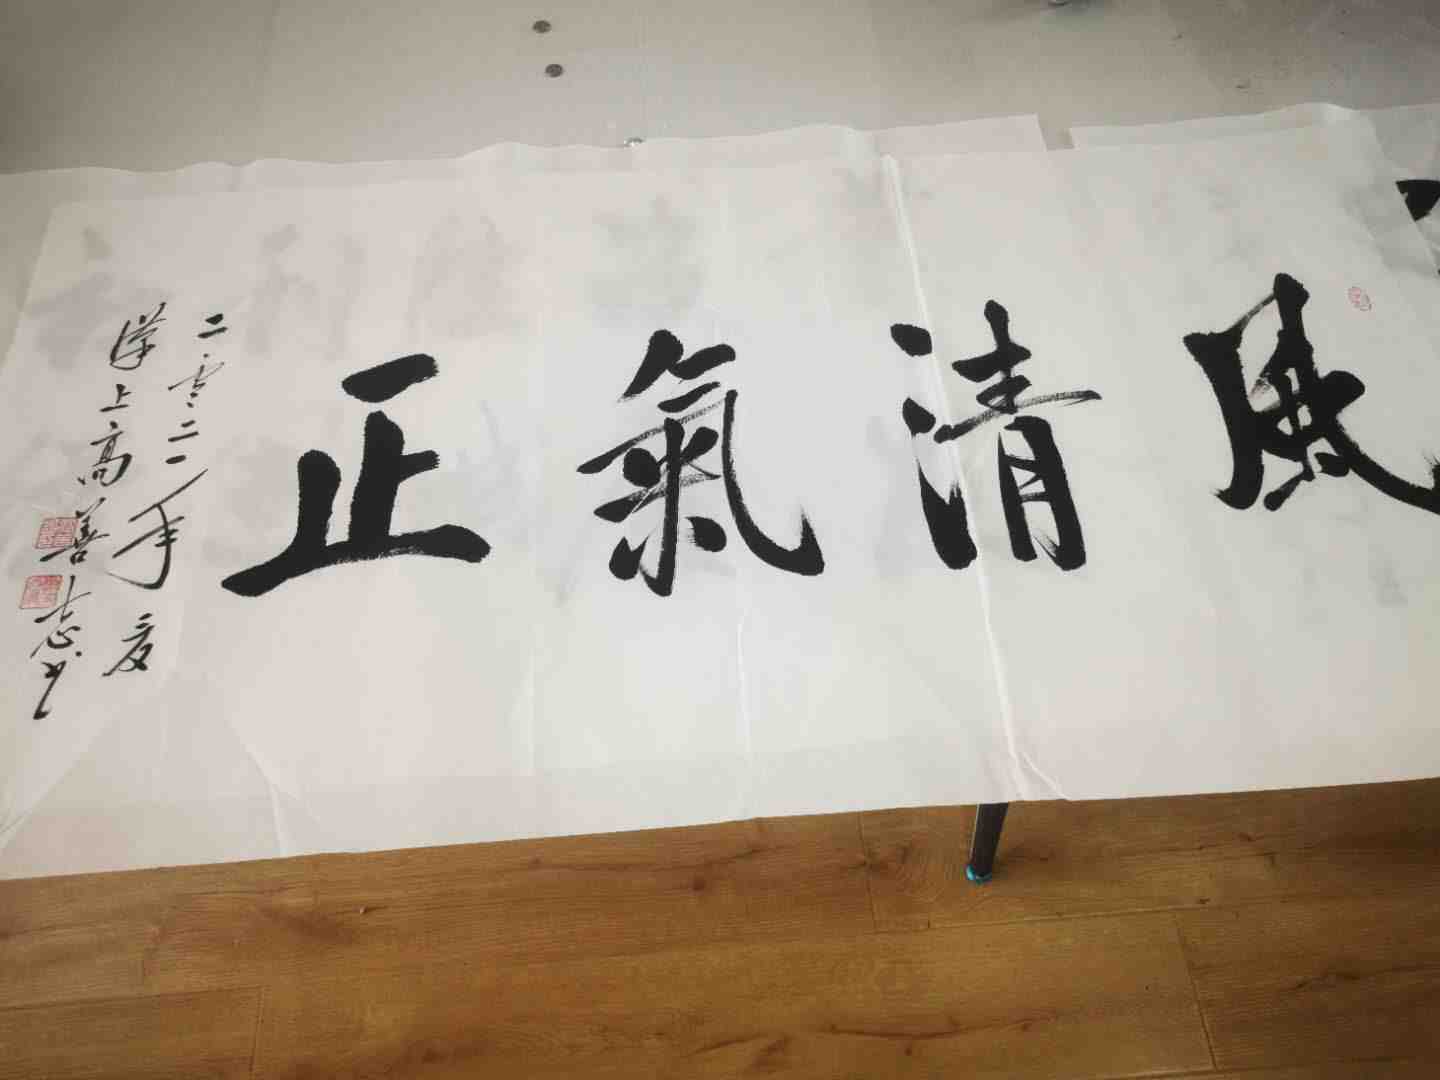 風清氣正
二零二二年夏
漢上高善志书